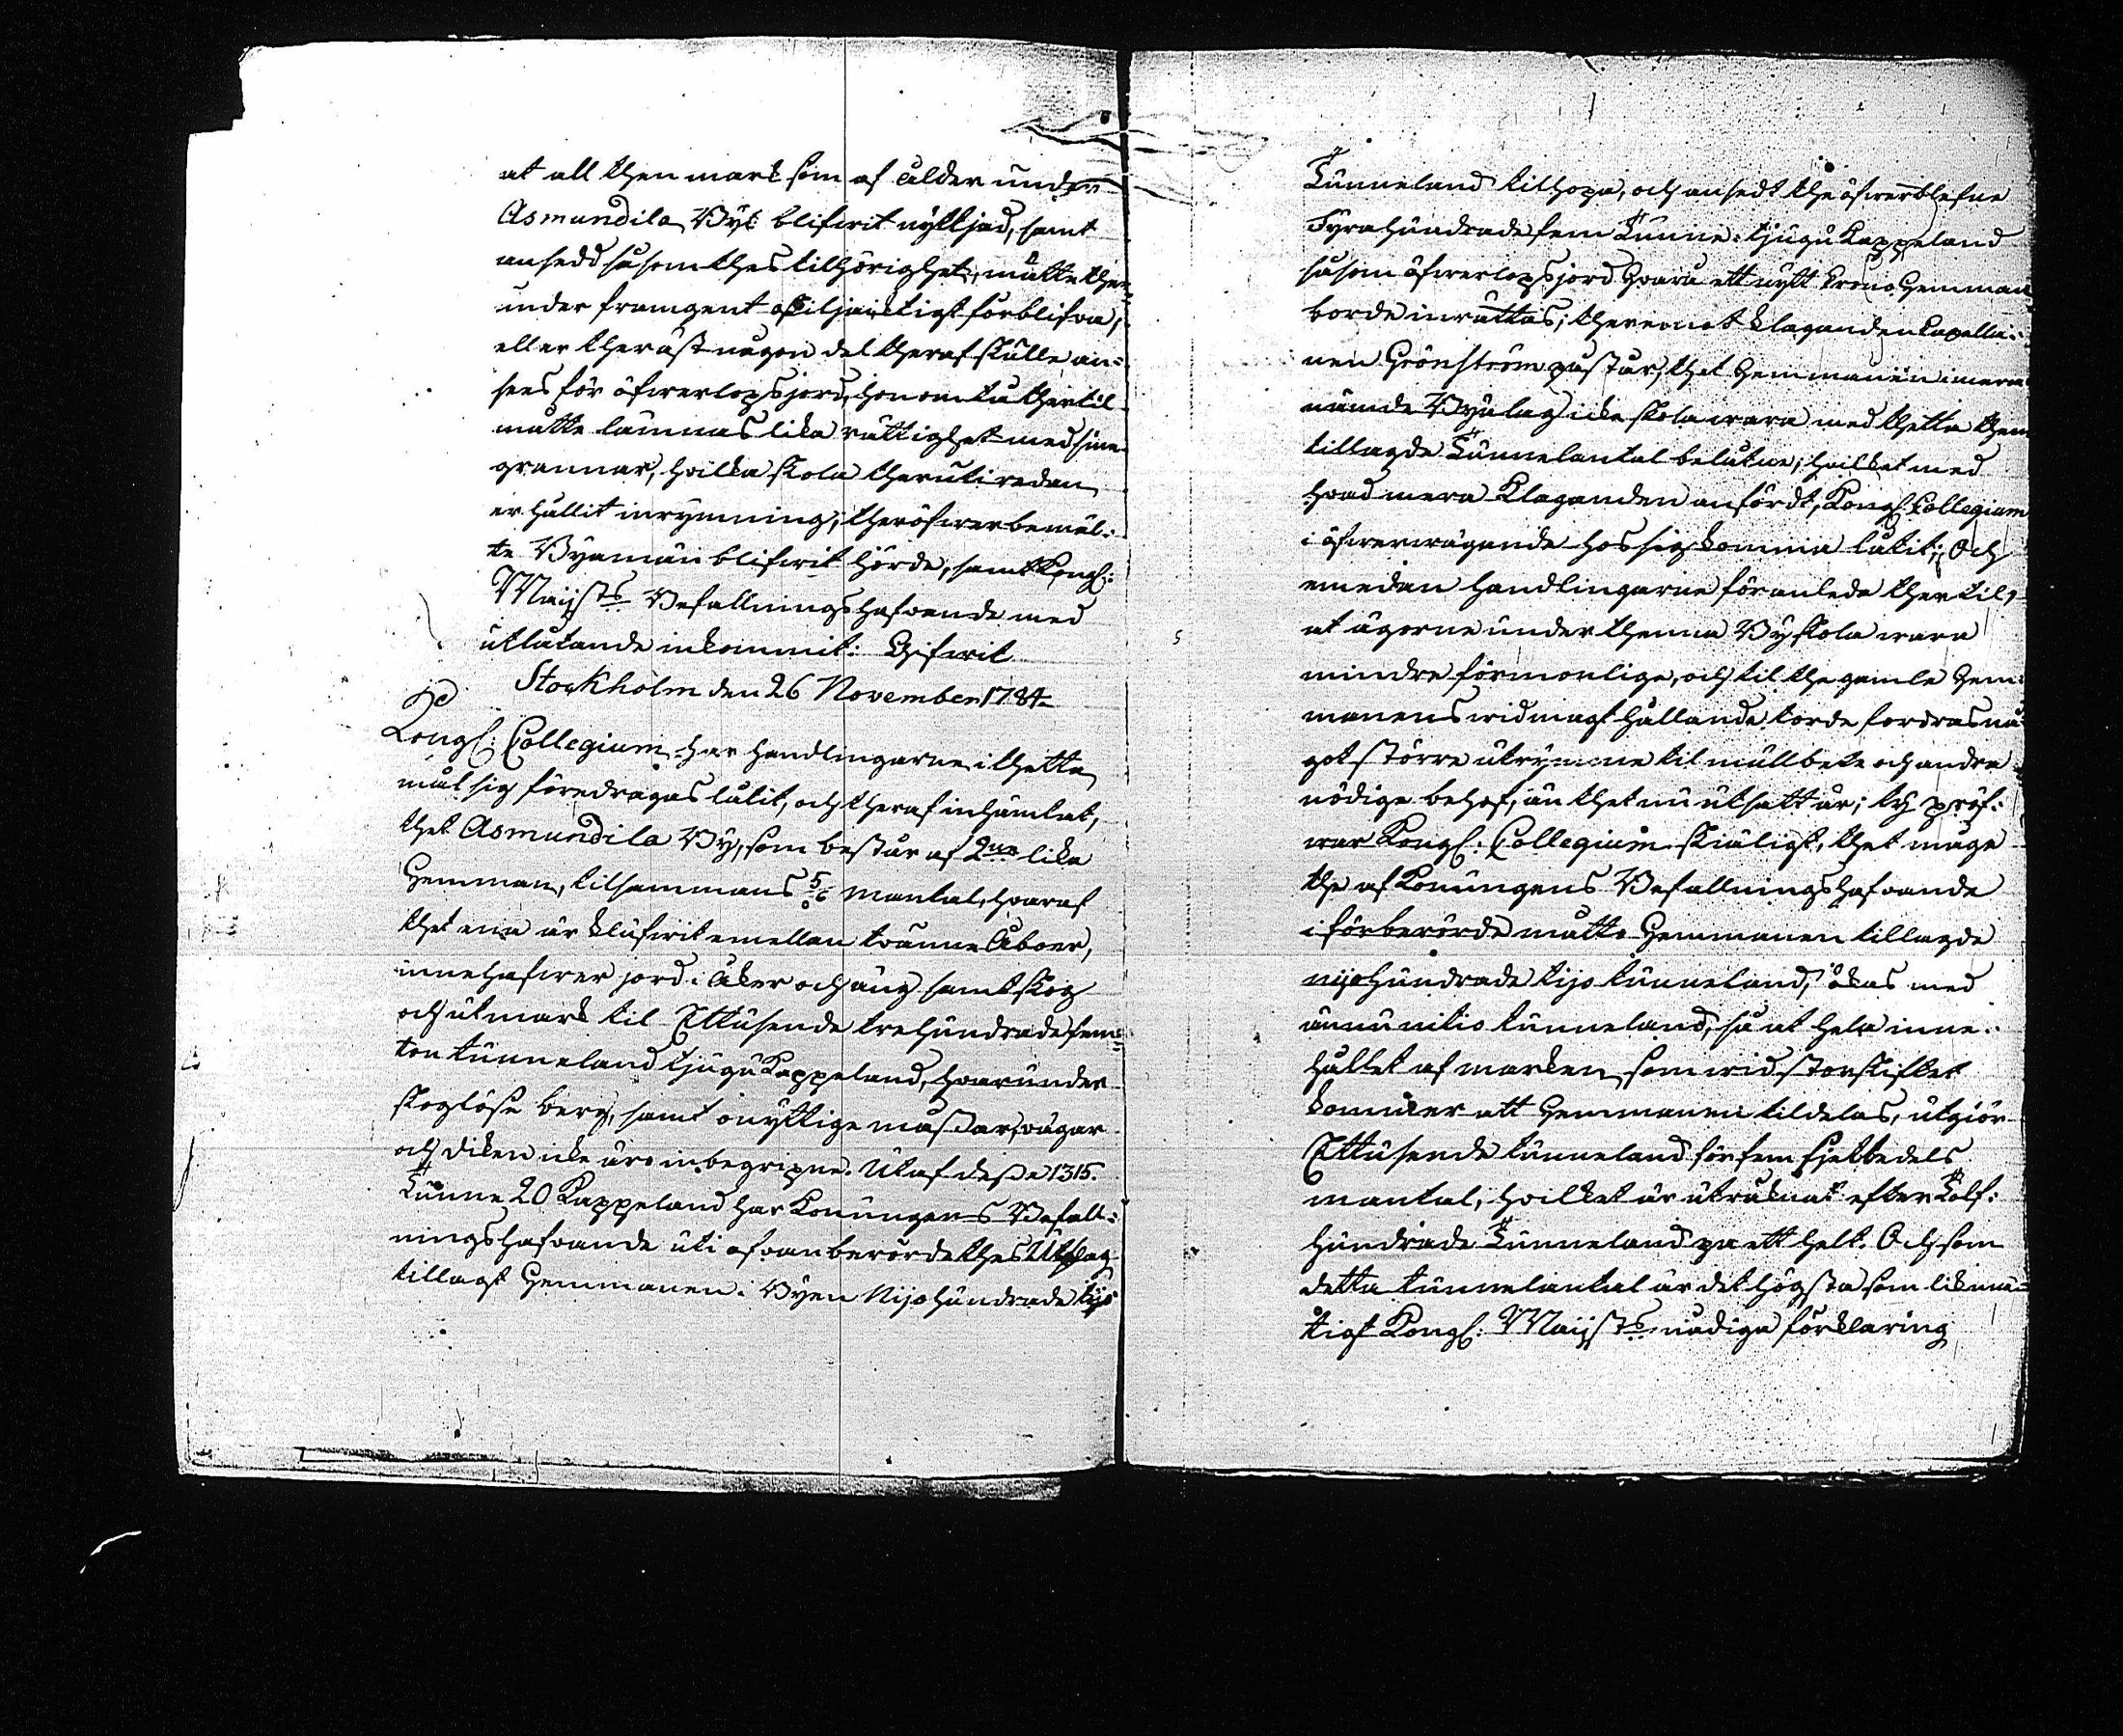 at all then mark som af ålder under
Asmundila By: blifwit nyttjad, samt
ansedd såsom thes tilhörighet, måtte ther-
under framgent oskiljaktigt förblifwa,
eller therest någon del theraf skulle an-
sees för öfwerlopsjord, honom tå thertil
måtte lämnas lika rättighet med sine
grannar, hvilka skola theruti redan
erhållit inrymning; theröfwer bemäl-
te Byamän blifwit hörde, samt Kongl:
Maijsts Befallningshafvande med
utlåtande inkommit: Gifwit
Stockholm den 26 November 1784
Kongl: Collegium har handlingarne i thetta
mål sig föredragas låtit, och theraf inhämtat,
thet Asmundila By, som består af 2ne lika
Hemman, tilsammans 5/6 mantal, hvaraf
thet ena är klufwit emellan tvänne Åboer,
innehafwer jord i åker och äng samt skog
och utmark til Ettusende trehundrade fem-
ton tunneland tjugu Kappeland, hvarunder
skoglöse berg, samt onyttige måssar, vägar
och diken icke äro inbegripne. Utaf desse 1315.
Tunne 20 Kappeland har Konungens Befall-
ningshafvande uti ofvanberörde thes Utslag
tillagt Hemmanen i Byen Nijohundrade tijo
Tunneland tilhopa, och ansedt the öfwerblefne
Fyrahundrade fem Tunne: tjugu Kappeland
såsom öfwerlopsjord hvarå ett nytt Krono Hemman
borde inrättas; theremot klaganden Capella-
nen Grönström påstår, thet Hemmanen i merm
nämde Byalag icke skola wara med thetta them
tillagde Tunnelantal belåtne; hvilket med
hvad mera Klaganden anfördt, Kongl. Collegium
i öfwerwägande hos sig komma låtit; Och
emedan handlingarne föranleda thertil,
at ägorne under thenna By skola wara
mindre förmonlige, och til the gamle Hem-
manens widmagthållande torde fordras nå-
got större utrymme til mullbete och andre
nödige behof, än thet nu utsatt är; ty pröf-
war Kongl: Collegium skiäligt, thet måge
the af Konungens Befallningshafvande
i förberörde måtto Hemmanen tillagde
nijohundrade tijo tunneland, ökas med
ännu nitio tunneland, så at hela inne-
hållet af marken, som wid storskiftet
kommer att Hemmanen tildelas, utgiör
Ettusende tunneland för fem sjettedels
mantal, hvilket är uträknat efter Tolf-
hundrade Tunneland på ett helt. Och som
detta tunnelantal är det högsta som likmä-
tigt Kongl: Maijsts nådiga förklaring